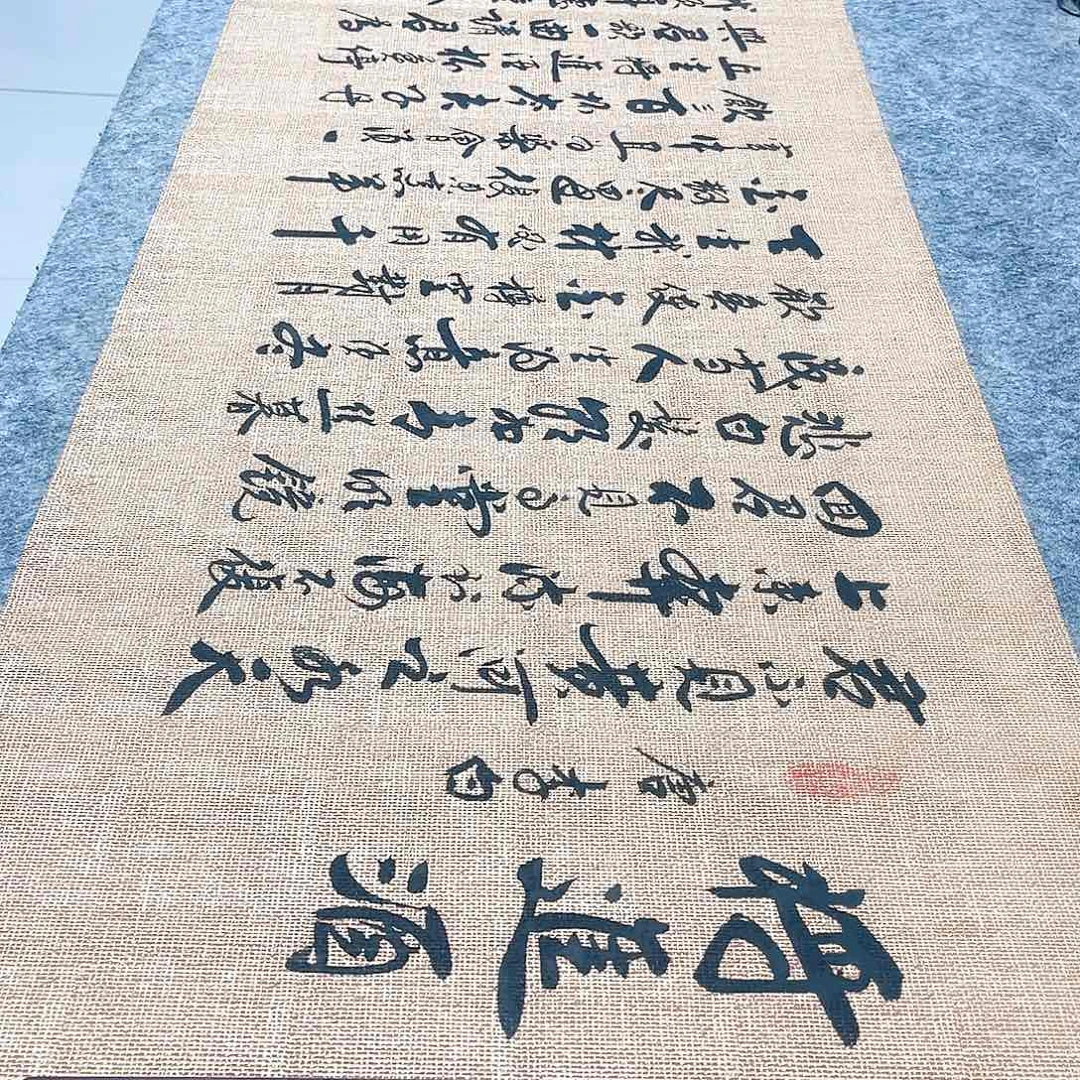 將進酒
唐李白
君不見黄河之水天
上来奔流到海不復
回君不見高堂明鏡
悲白髮朝如青絲暮
成雪人生得意須盡
歡莫使金樽空對月
天生我材必有用千
金散盡還復来烹羊
宰牛且為樂會須一
飲三百杯岑夫子丹
丘生將進酒杯莫停
與君歌一曲請君為